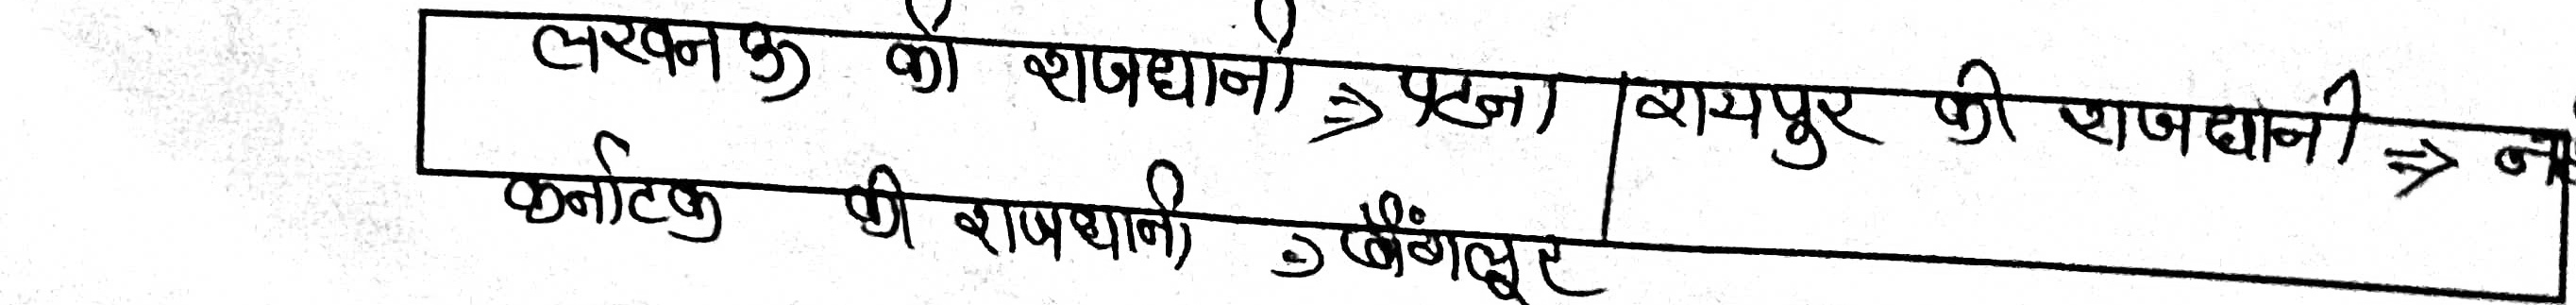 लखनऊ की राजधानी ⇒ पटना | रायपुर की राजधानी ⇒
कर्नाटक की राजधानी ⇒ बैंगलूर